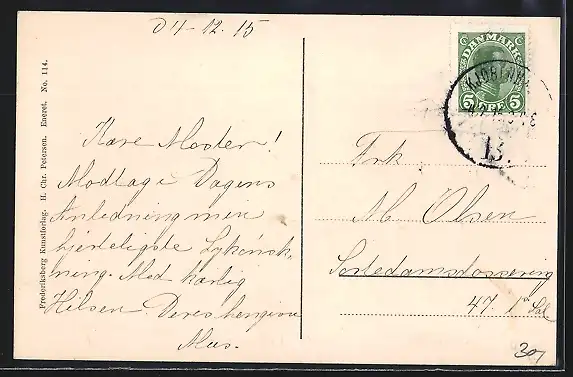 D 4-12.15
Kære Moster!
Modtage Dagens
Anledning min
hjerteligste Lykønsk-
ning. Med kærlig
Hilsen Deres hengivne
Mus.
Frederiksberg Kunstforlag. H. Chr. Petersen. Eneret. No. 114.
DANMARK
5 ØRE 5
KJØBENH
13.
Frk
M. Olsen
Sortedamsdossering
47. 1 Sal.
30,